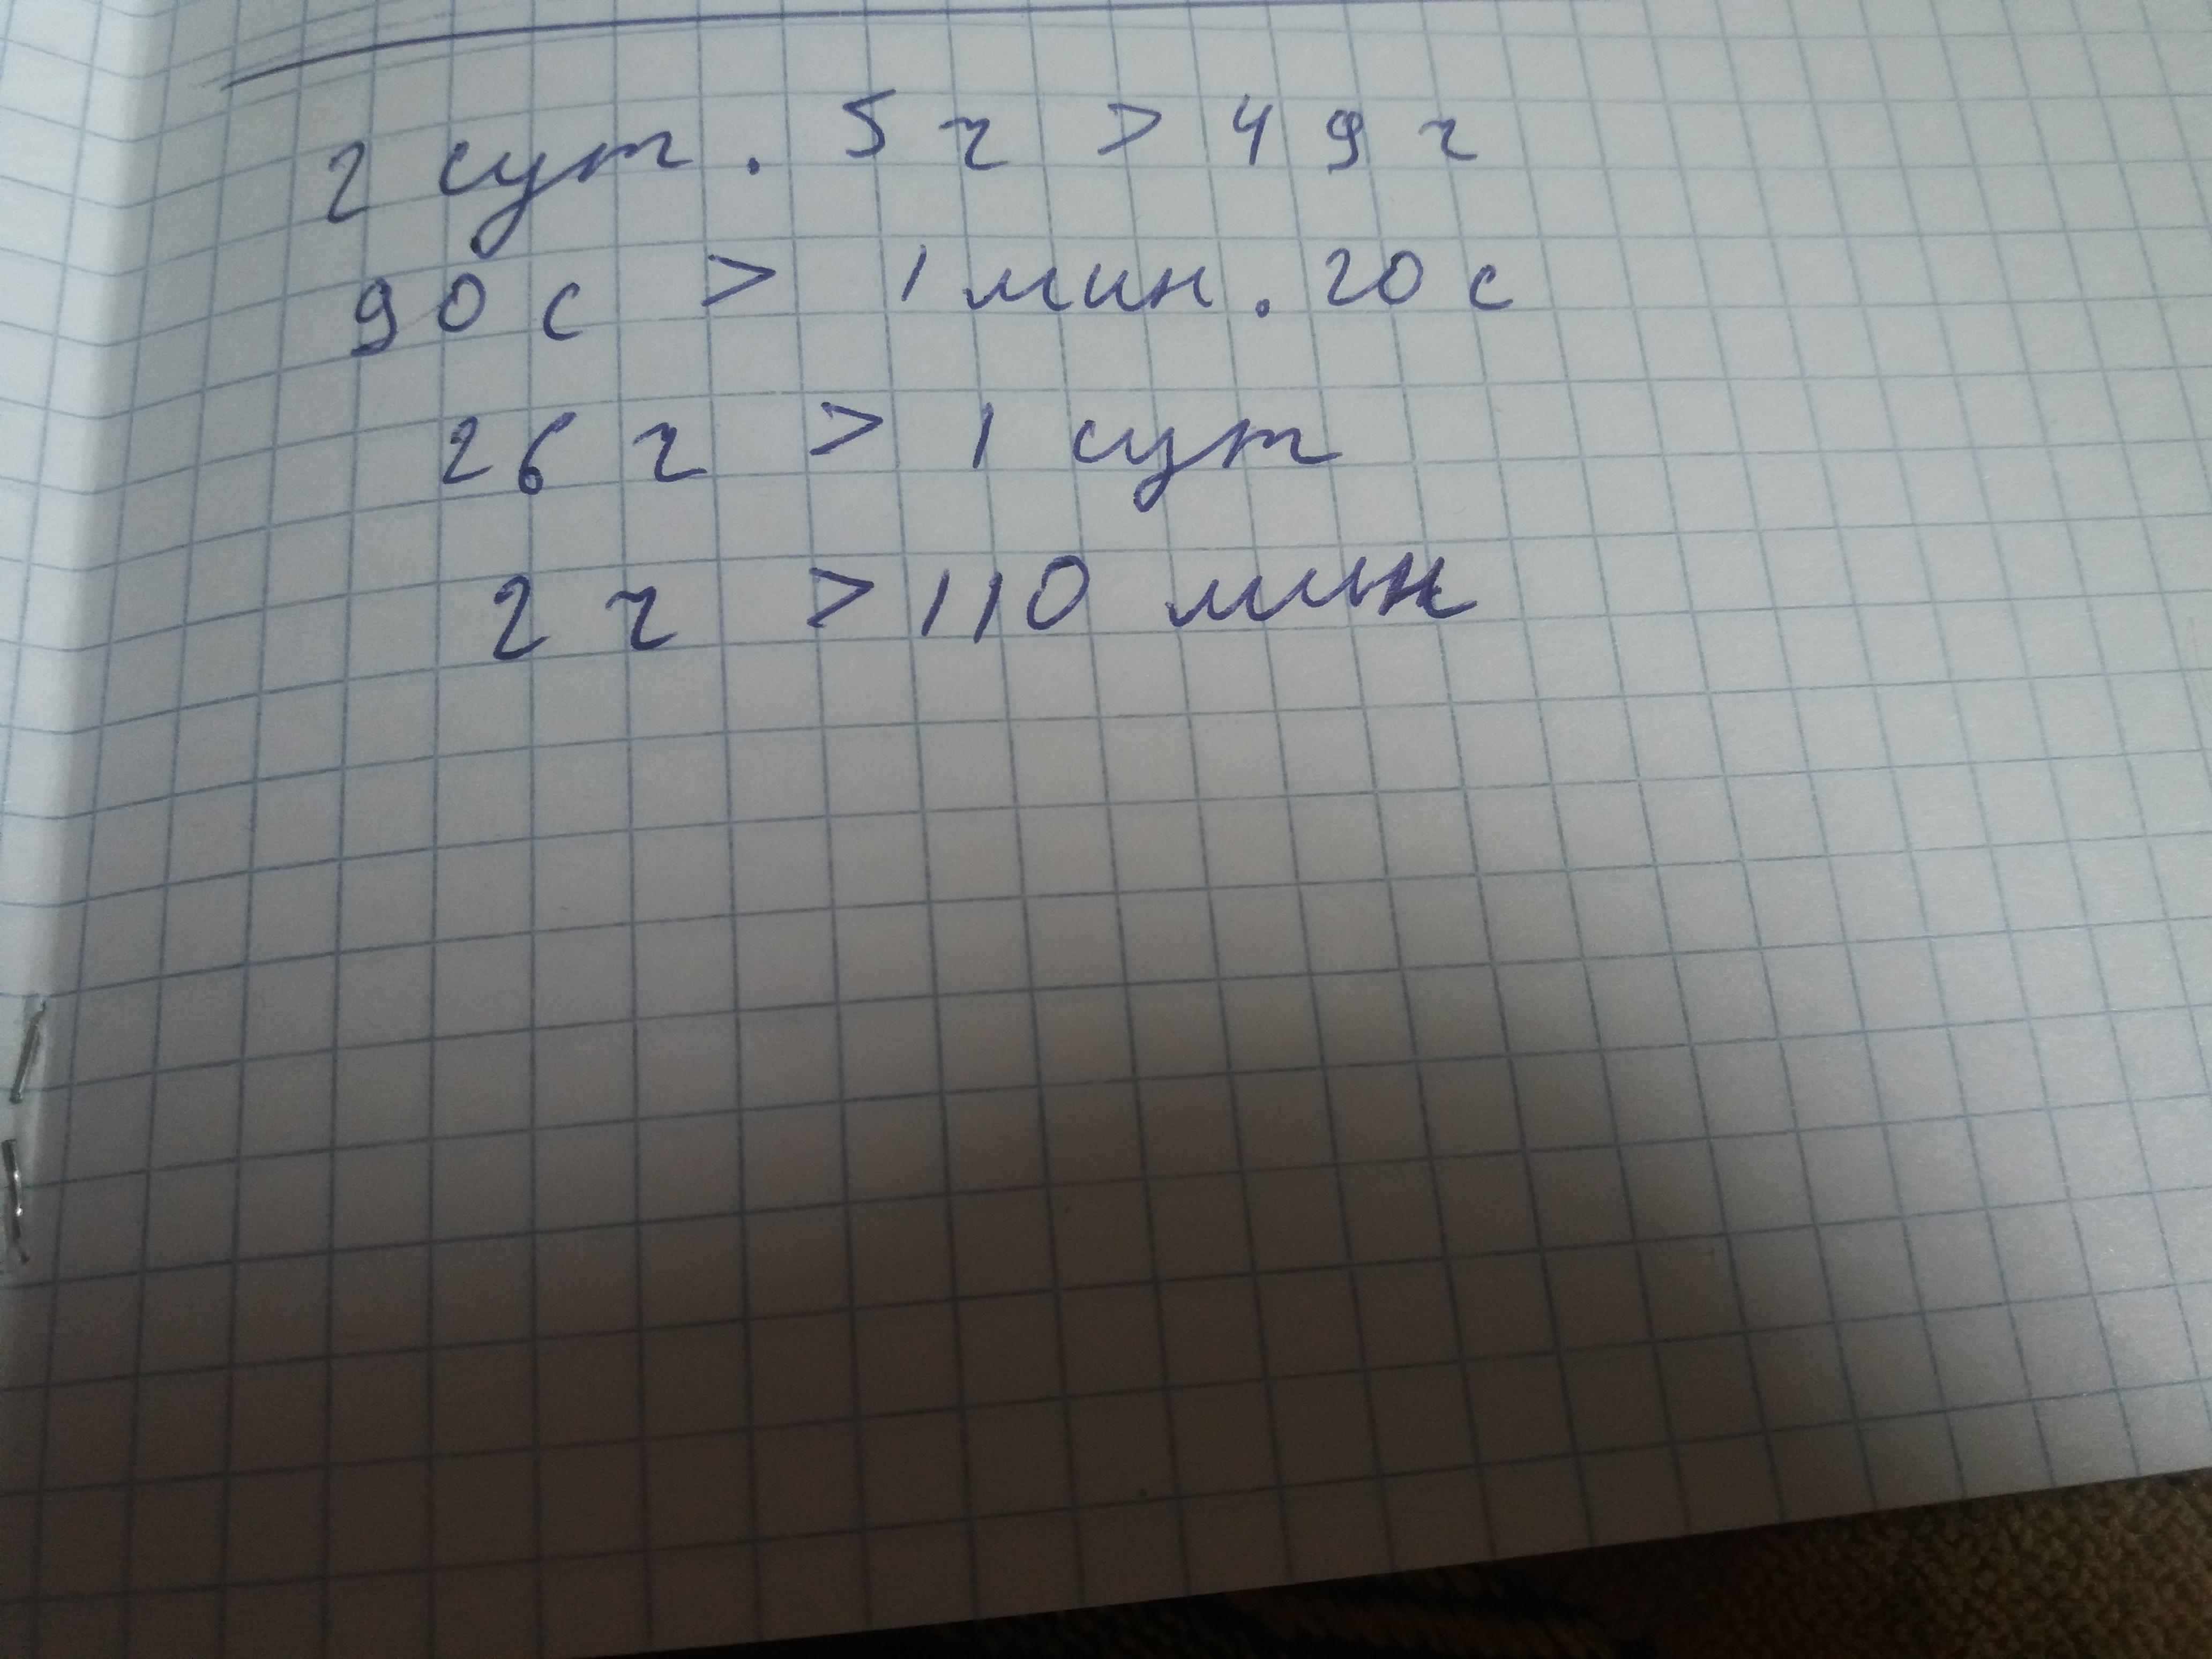 2 сут. 5 ч > 49 ч
90 с > 1 мин. 20 с
26 ч > 1 сут
2 ч > 110 мин